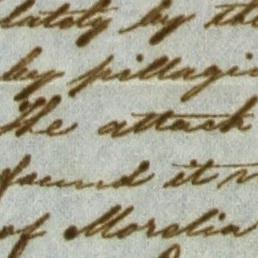 lately by the
by pillagi
The attack
found it n
of Morelia